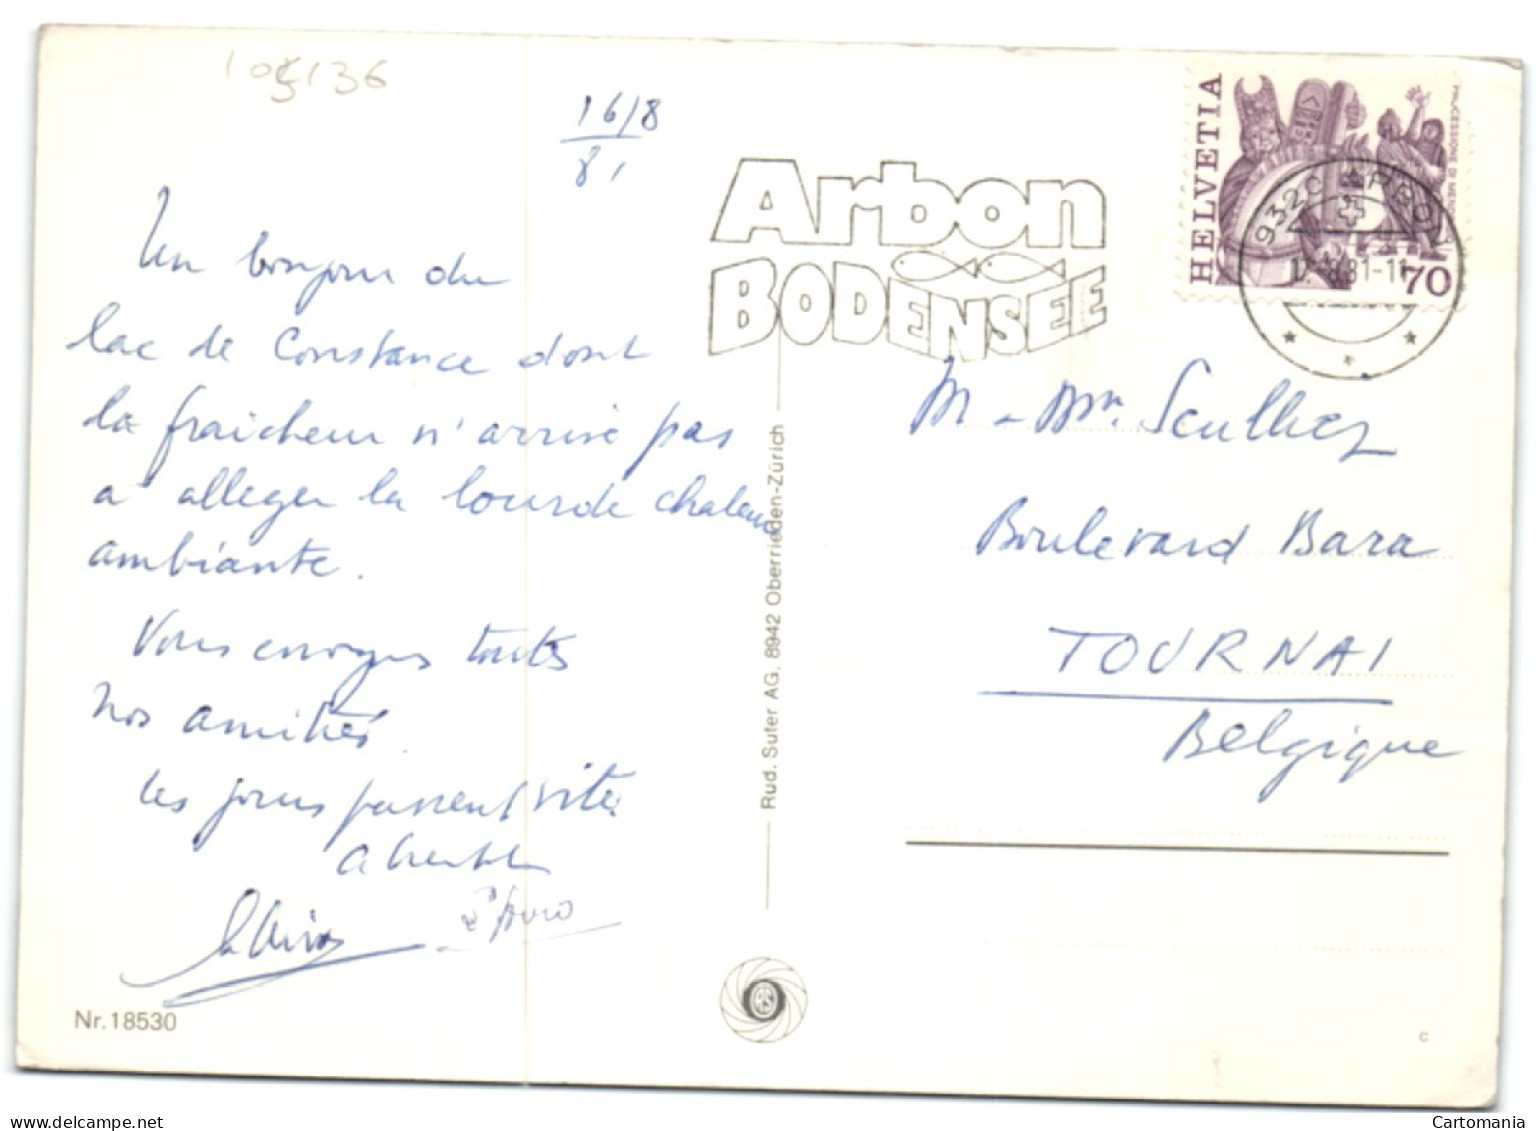 105136
16/8
81
Un bonjour du
lac de Constance dont
la fraicheur n'arrive pas
a alleger la lourde chaleur
ambiante.
Vous envoyons toutes
nos amitiés.
Les jours passent vite
a bientôt
Nr.18530
Rud. Suter AG, 8942 Oberrieden-Zürich
Arbon
BODENSEE
HELVETIA
PROCESSIONE DI MEN
70
9320 ARBON
81-11
M - Mm.
Boulevard Bara
TOURNAI
Belgique
C
Cartomania